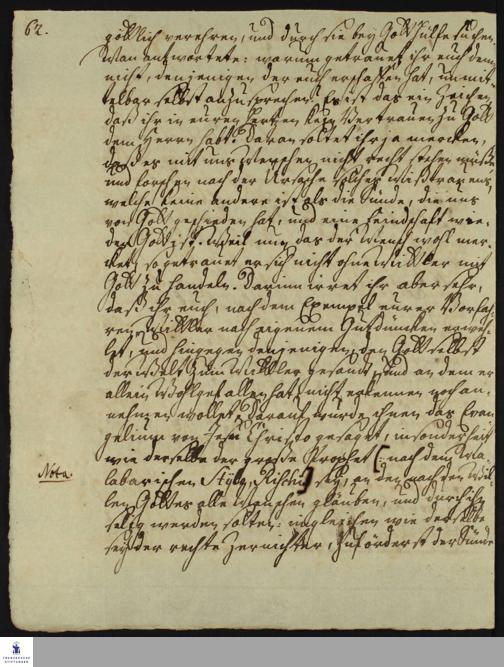 62.
göttlich verehren, und durch sie bey Gott Hülfe suchen.
Man antwortete: warum getrauet ihr euch denn
nicht, denjenigen der euch erschaffen hat, unmit-
telbar selbst anzusprechen? Es ist das ein Zeichen,
daß ihr in euren Hertzen kein Vertrauen zu Gott
dem Herrn habt. Daran soltet ihr ja mercken,
daß es mit uns Menschen nicht recht stehen müße
und forschen nach der Ursache solches Mißtrauens,
welche keine andere ist als die Sünde, die uns
von Gott geschieden hat, und eine Feindschaft wie-
der Gott ist. Weil nun das der Mensch wohl mer-
ket, so getrauet er sich nicht ohne Mittler mit
Gott zu handeln. Darinn irret ihr aber sehr,
daß ihr euch, nach dem Exempel eurer Vorfah-
ren Mittler nach eigenem Gutdüncken erweh-
let, und hingegen denjenigen, den Gott selbst
der Welt zum Mittler gesandt, und an dem er
allein Wohlgefallen hat, nicht erkennen noch an-
nehmen wollet. Darauf wurde ihnen das Evan-
gelium von Jesu Christo gesagt, insonderheit
wie derselbe der große Prophet [: nach dem Ma-
Nota. labarischen
sey, an den nach dem Wil-
len Gottes alle Menschen gläuben, und durch ihn
selig werden solten: ingleichen wie derselbe
sey der rechte Zernichter, zuförderst der Sünde
FRANCKESCHE STIFTUNGEN